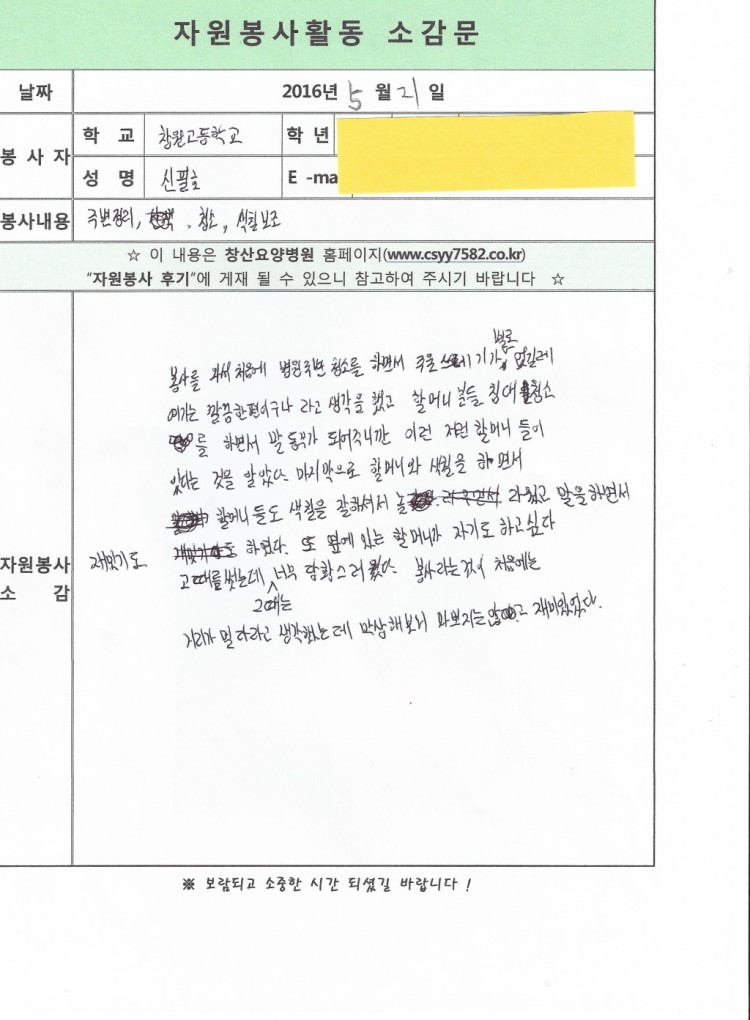 자원봉사활동 소감문
날짜 2016년 5 월 21 일
봉사자
학 교 창원고등학교 학 년
성 명 신필호 E -ma
봉사내용 주변정리, 청소, 식힐보조
☆ 이 내용은 창산요양병원 홈페이지(www.csyy7582.co.kr)
"자원봉사 후기"에 게재 될 수 있으니 참고하여 주시기 바랍니다 ☆
별로
봉사를 와서 처음에 병원주변 청소를 하면서 주울 쓰레기가 없길레
여기는 깔끔한편이구나 라고 생각을 했고 할머니 분들 침대 청소
를 하면서 말동무가 되어주니깐 이런 저런 할머니 들이
있다는 것을 알았다. 마지막으로 할머니와 색칠을 하면서
할머니들도 색칠을 잘하셔서 놀라웠고 말을하면서
자원봉사 소 감
재밌기도 하였다. 또 옆에 있는 할머니가 자기도 하고싶다
고 떼를썼는데 너무 당황스러웠다. 봉사라는것이 처음에는
그때는
거리가 멀다라고 생각했는데 막상해보니 나쁘지는않고 재미있었다.
※ 보람되고 소중한 시간 되셨길 바랍니다 !